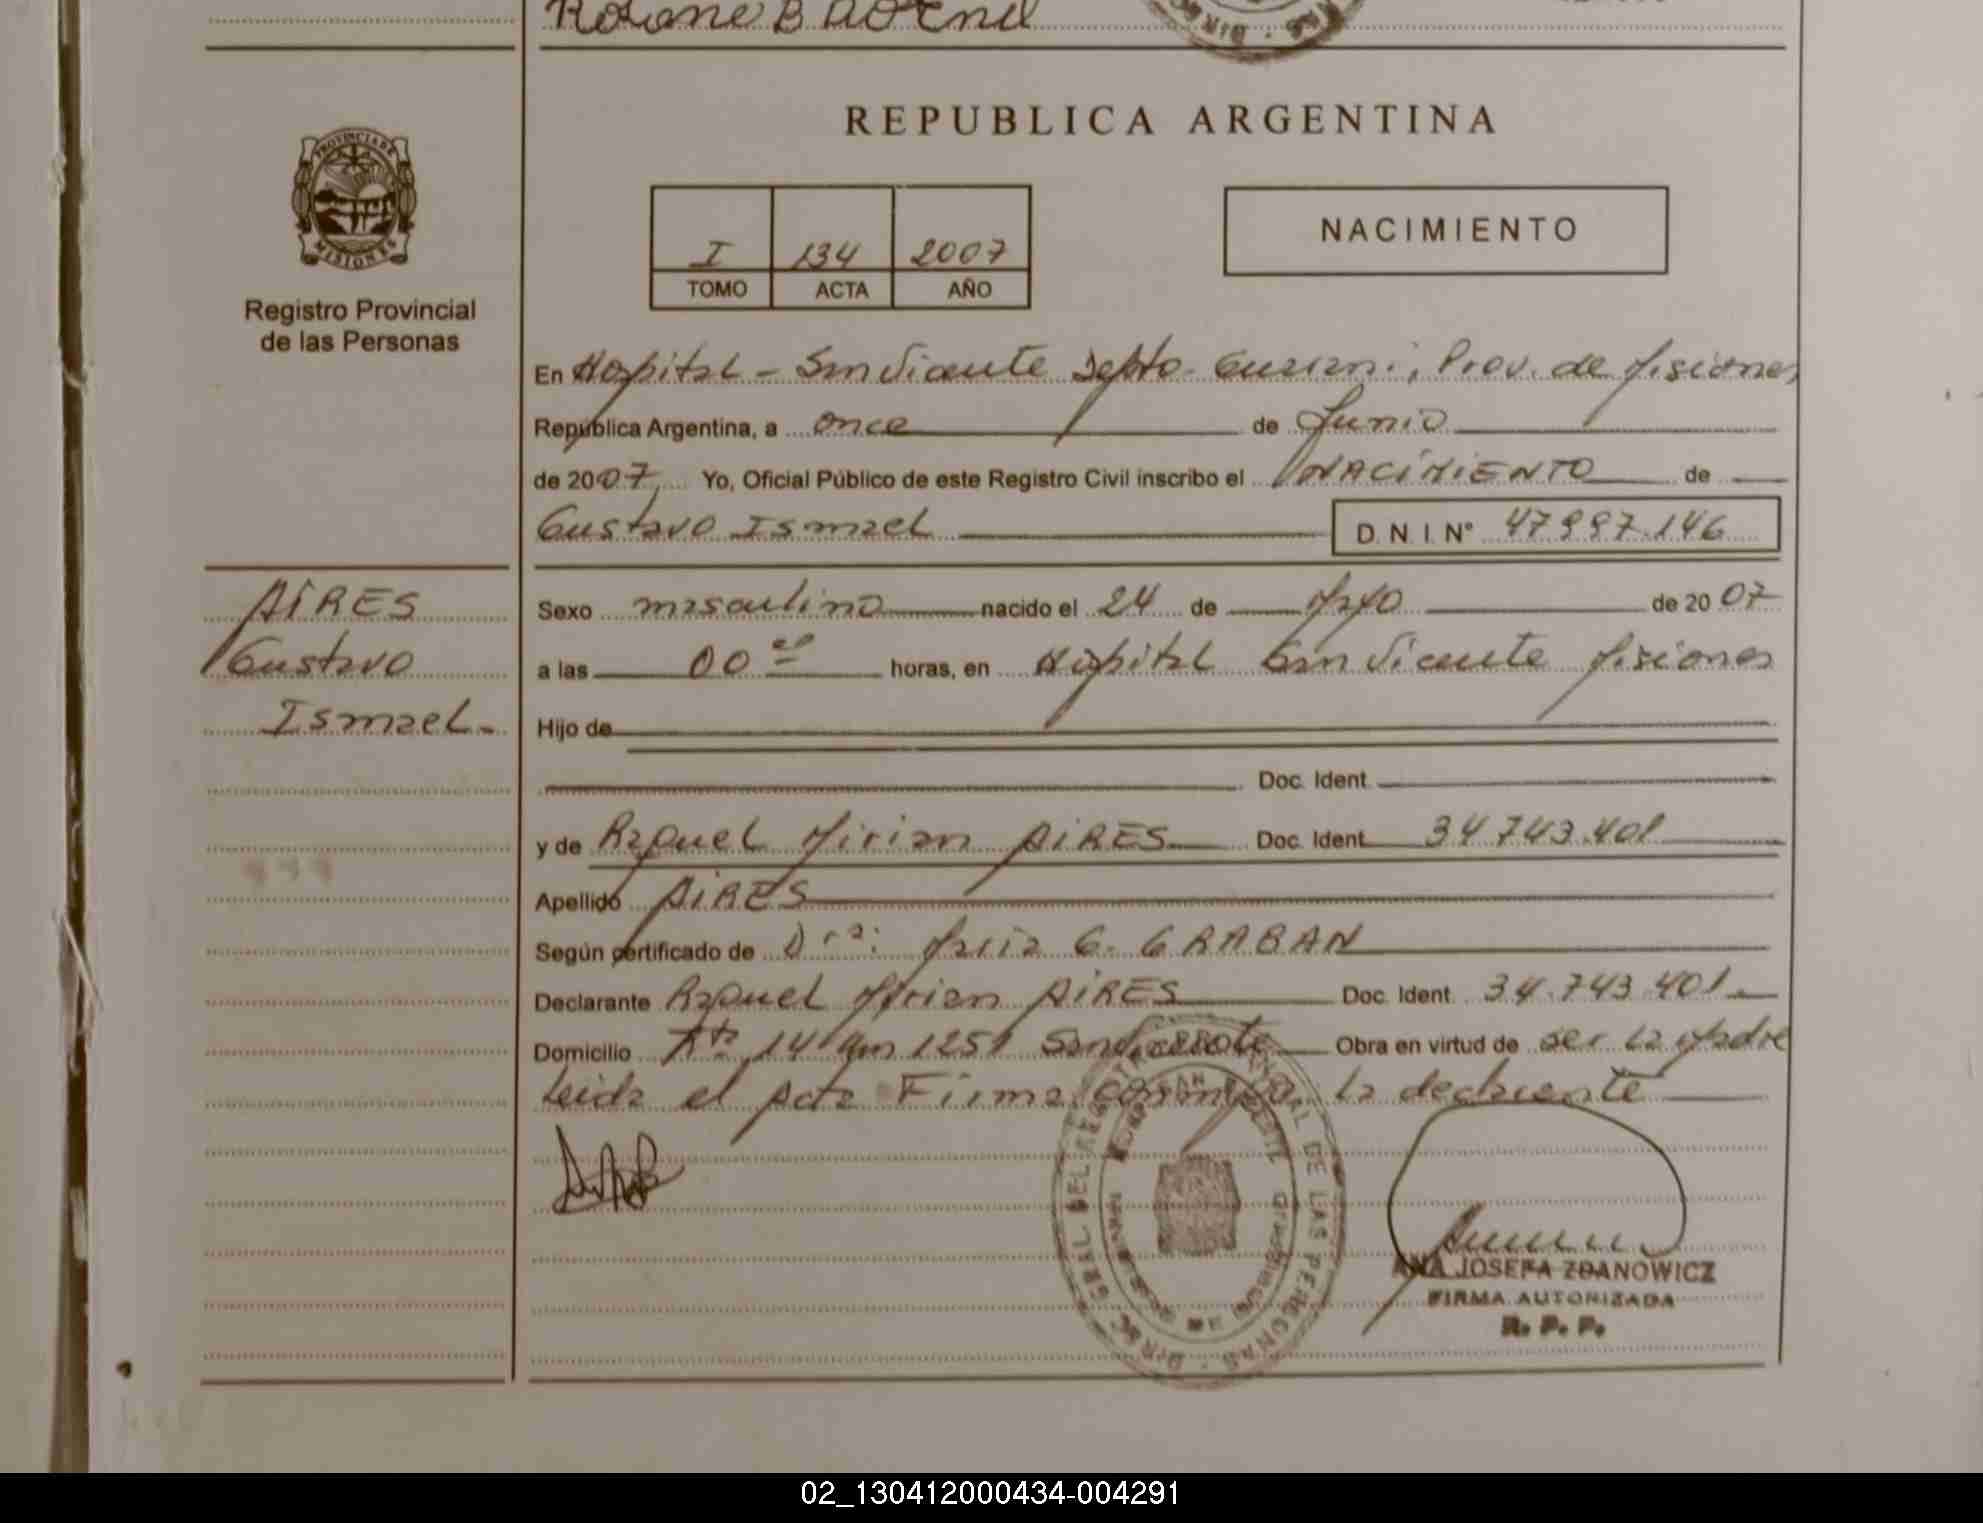 REPUBLICA ARGENTINA
PROVINCIA DE
MISIONES
Registro Provincial
de las Personas
I 134 2007
TOMO ACTA AÑO
NACIMIENTO
En Hospital - San Vicente Depto. Guarani, Prov. de Misiones
República Argentina, a once de Junio
de 2007, Yo, Oficial Público de este Registro Civil inscribo el NACIMIENTO de
Gustavo Ismael D. N. I. N° 47.997.146
AIRES
Gustavo
Ismael.
Sexo masculino nacido el 24 de Mayo de 20 07
a las 00 horas, en Hospital San Vicente Misiones
Hijo de
Doc. Ident.
y de Raquel Mirian AIRES Doc. Ident. 34.743.401
Apellido AIRES
Según certificado de Dra: Maria G. GRABAN
Declarante Raquel Mirian AIRES Doc. Ident. 34.743.401
Domicilio Rta 14 Km 1251 San Vicente Obra en virtud de ser la Madre
Leida el Acta Firma conmigo la declarante
ANA JOSEFA ZDANOWICZ
FIRMA AUTORIZADA
R. P. P.
02_130412000434-004291